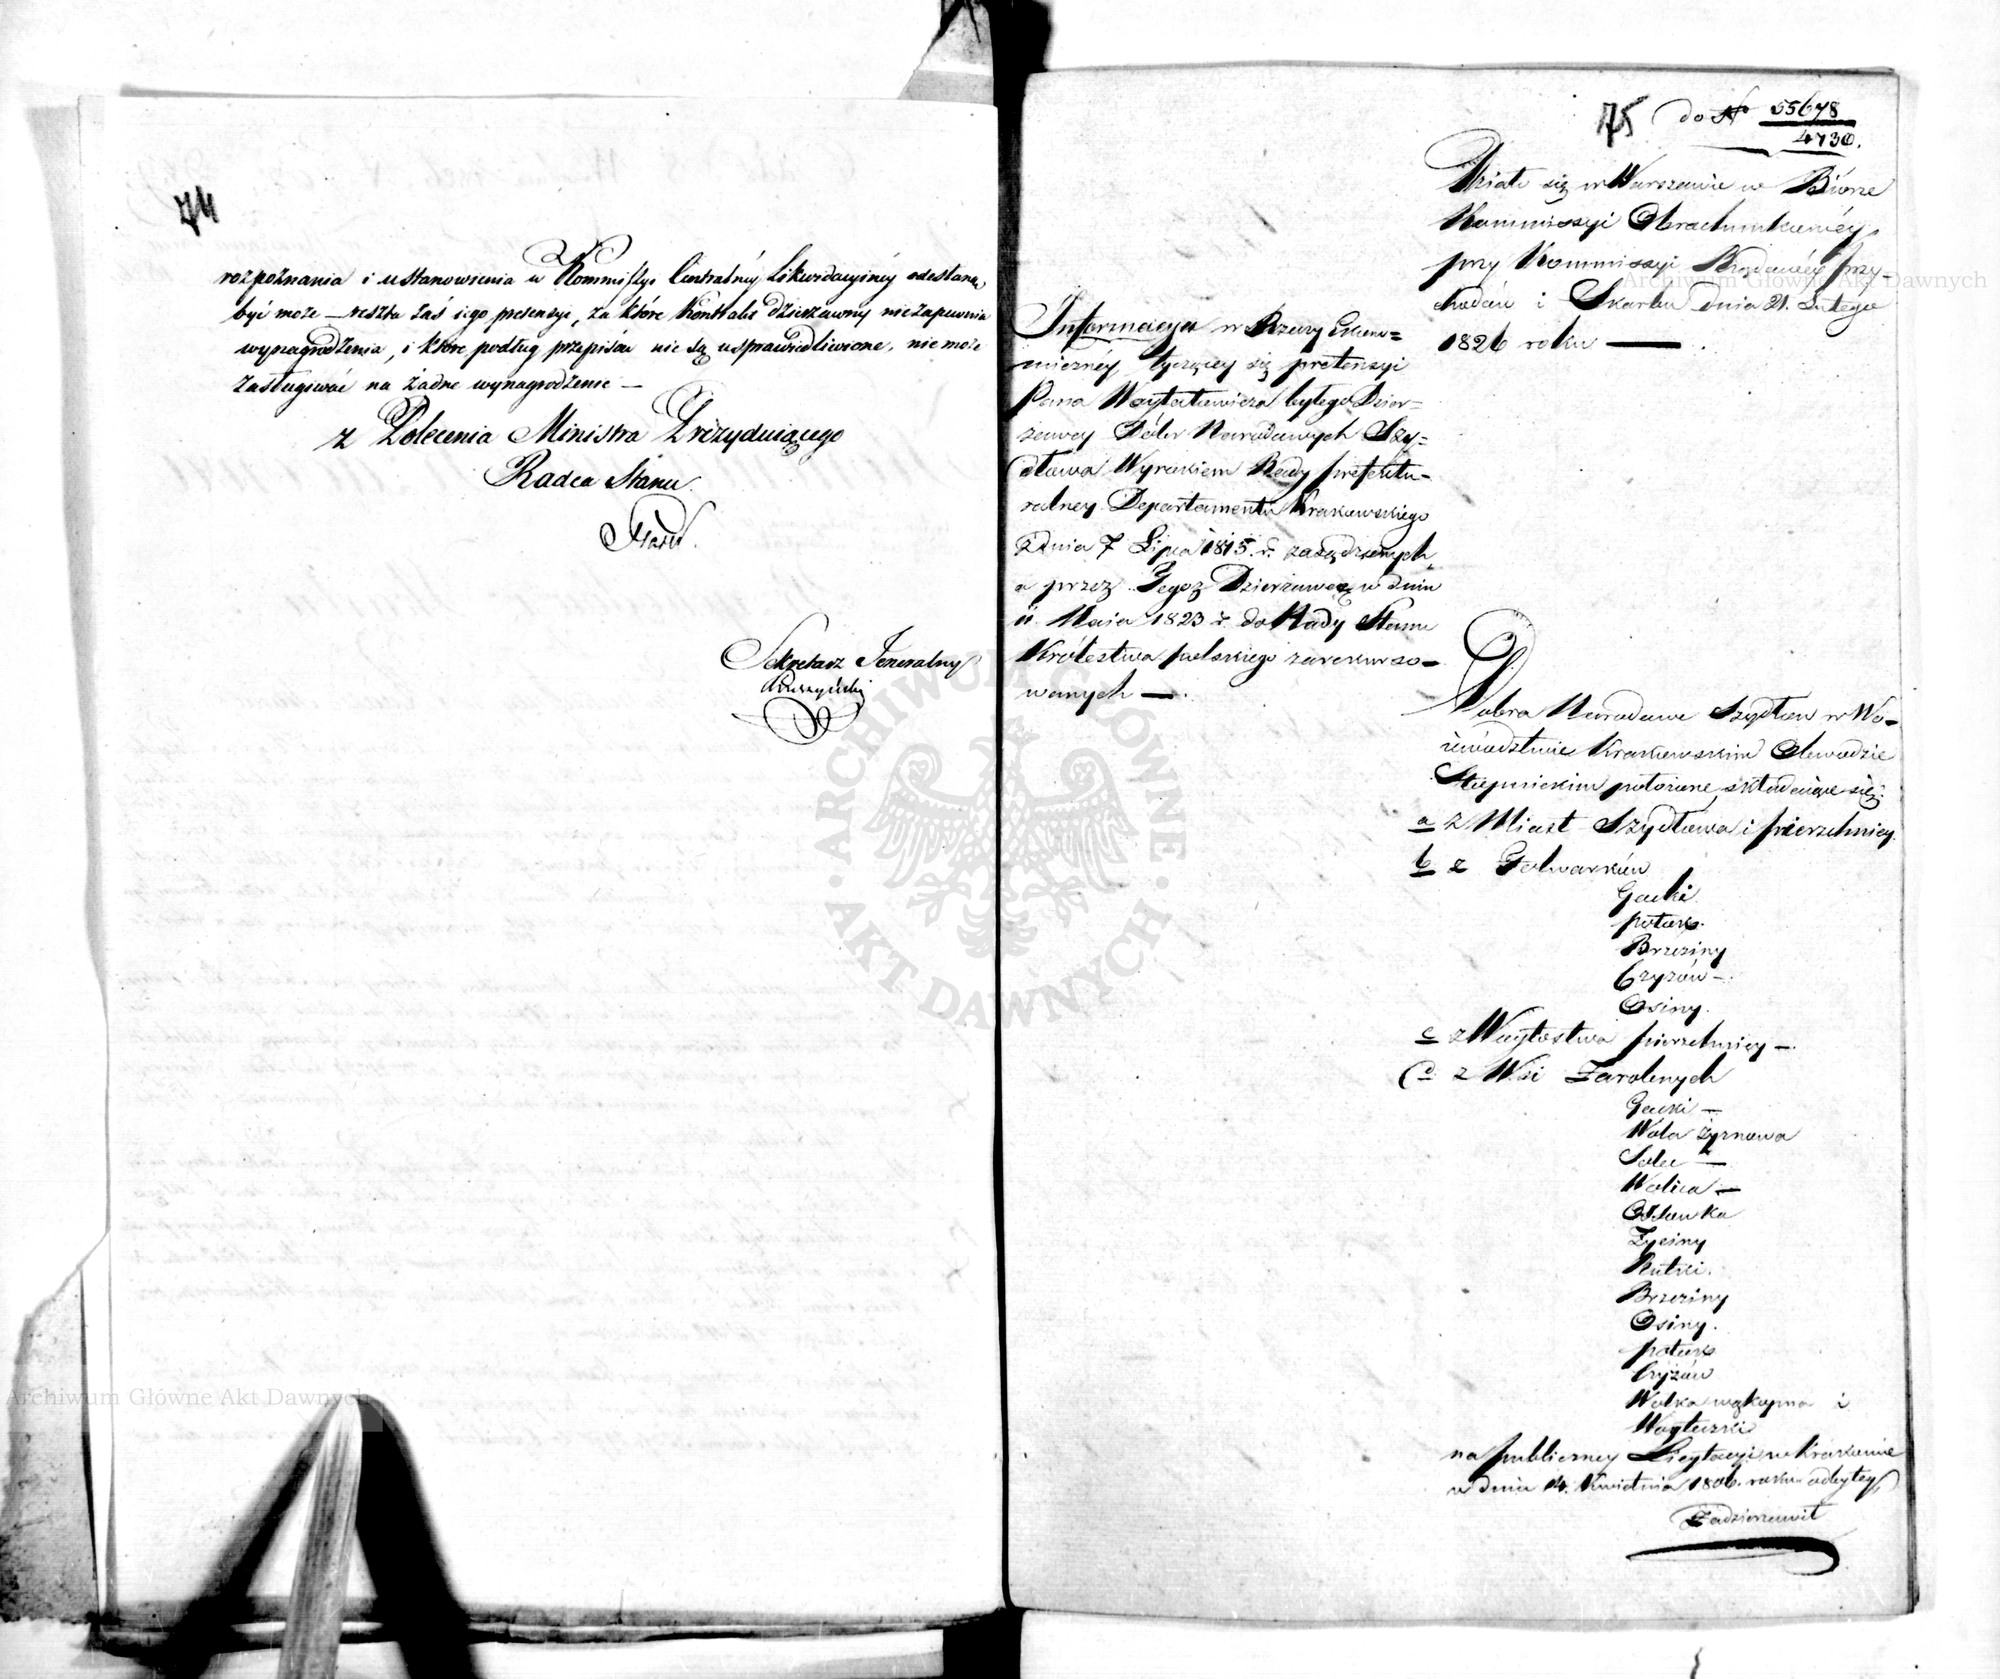 74
rozpoznania i ustanowienia w Kommissyi Centralnéy Likwidacyinéy odesłana
być może — reszta zaś iego pretensyi, za które Kontrakt dzierżawny nie zapewnia
wynagrodzenia, i które podług przepisów nie są usprawiedliwione, nie może
zasługiwać na żadne wynagrodzenie —
z Polecenia Ministra Prezyduiącego
Radca Stanu
Sekretarz Jeneralny
75 do N 55678
4730.
Działo się w Warszawie w Biórze
Kommissyi Obrachunkowéy
przy Kommissyi Rządowéy Przy-
chodów i Skarbu dnia 21. Lutego
1826 roku — .
Informacya w Rzeczy Ekono=
miczney, tyczącey się pretensyi
Pana Woytatowicza byłego Dzier=
żawcy Dóbr Narodowych Szy=
dłowa Wyrokiem Rady prefektu=
ralney Departamentu Krakowskiego
z dnia 7 Lipca 1815. r. zasądzonych,
a przez Tegoż Dzierżawcę w dniu
11. Maia 1823 r. do Rady Stanu
Królestwa polskiego zarekurso=
wanych — .
Dobra Narodowe Szydłow w Wo=
iewództwie Krakowskim Obwodzie
Stopnickim położone składaiące się:
a z Miast Szydłowa i pierzchnicy
b z Folwarków
Gacki
potok
Brzeziny
Czyżów — .
Osiny.
c z Woytostwa pierzchnicy — .
d z Wsi Zarobnych
Gacki —
Wola żyznowa
Solec —
Wolica —
Osówka
Życiny
Rutki.
Brzeziny
Osiny.
potok
Czyżów
Wolka i
na publiczney Licytacyi w Krakowie
w dniu 14. Kwietnia 1806. roku odbytey
Zadzierżawił
ARCHIWUM GŁÓWNE · AKT DAWNYCH ·
Archiwum Główne Akt Dawnych
Archiwum Główne Akt Dawnych